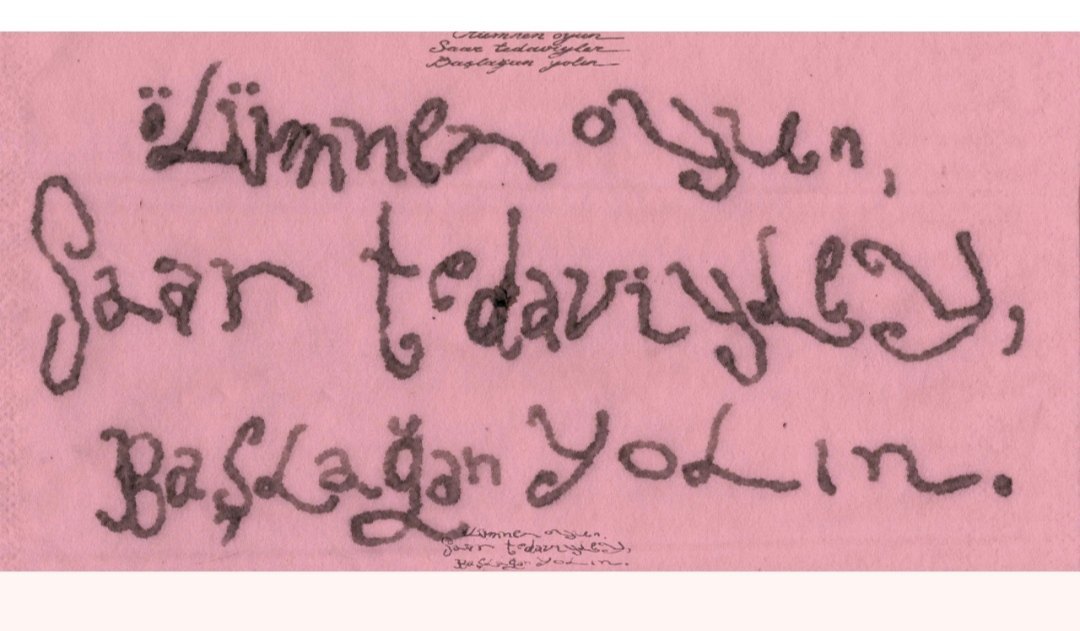 oyun
Saar tedaviyley
Başlağan yolın
ölümnen oyun,
Saar tedaviyley,
Başlağan yolın.
ölümnen oyun.
Saar tedaviyley,
Başlağan yolın.